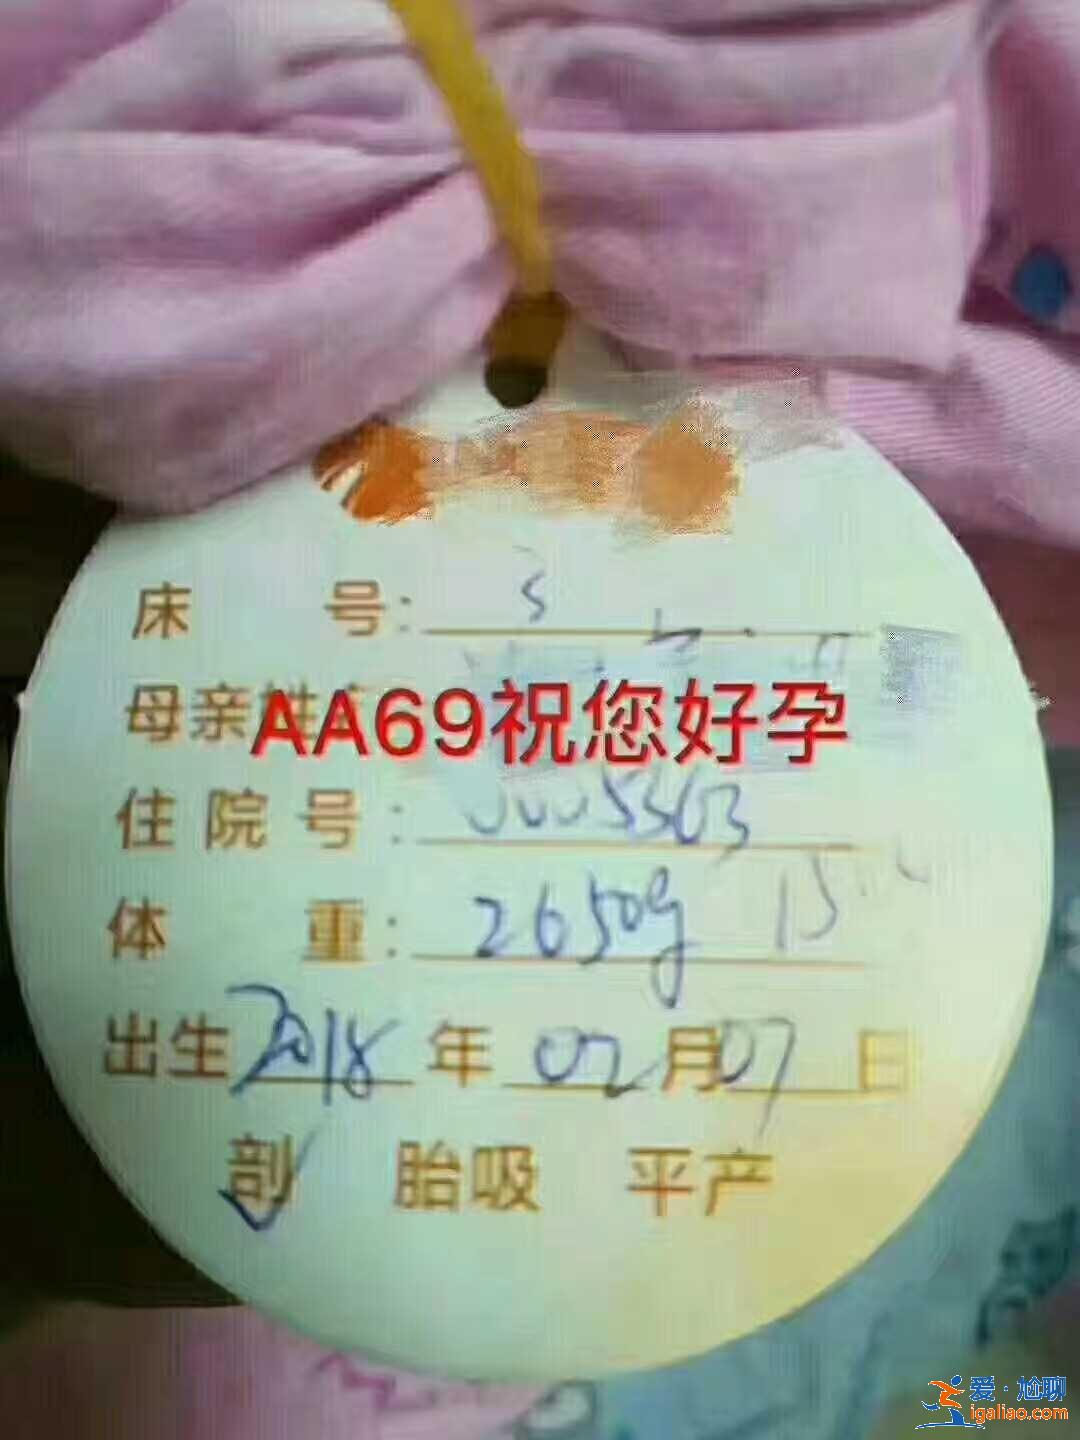 床 号: 3
母亲
AA69祝您好孕
住院号: 0005363
体 重: 2650g 15
出生2018年02月07日
剖 胎吸 平产
爱·尬聊
igaliao.com